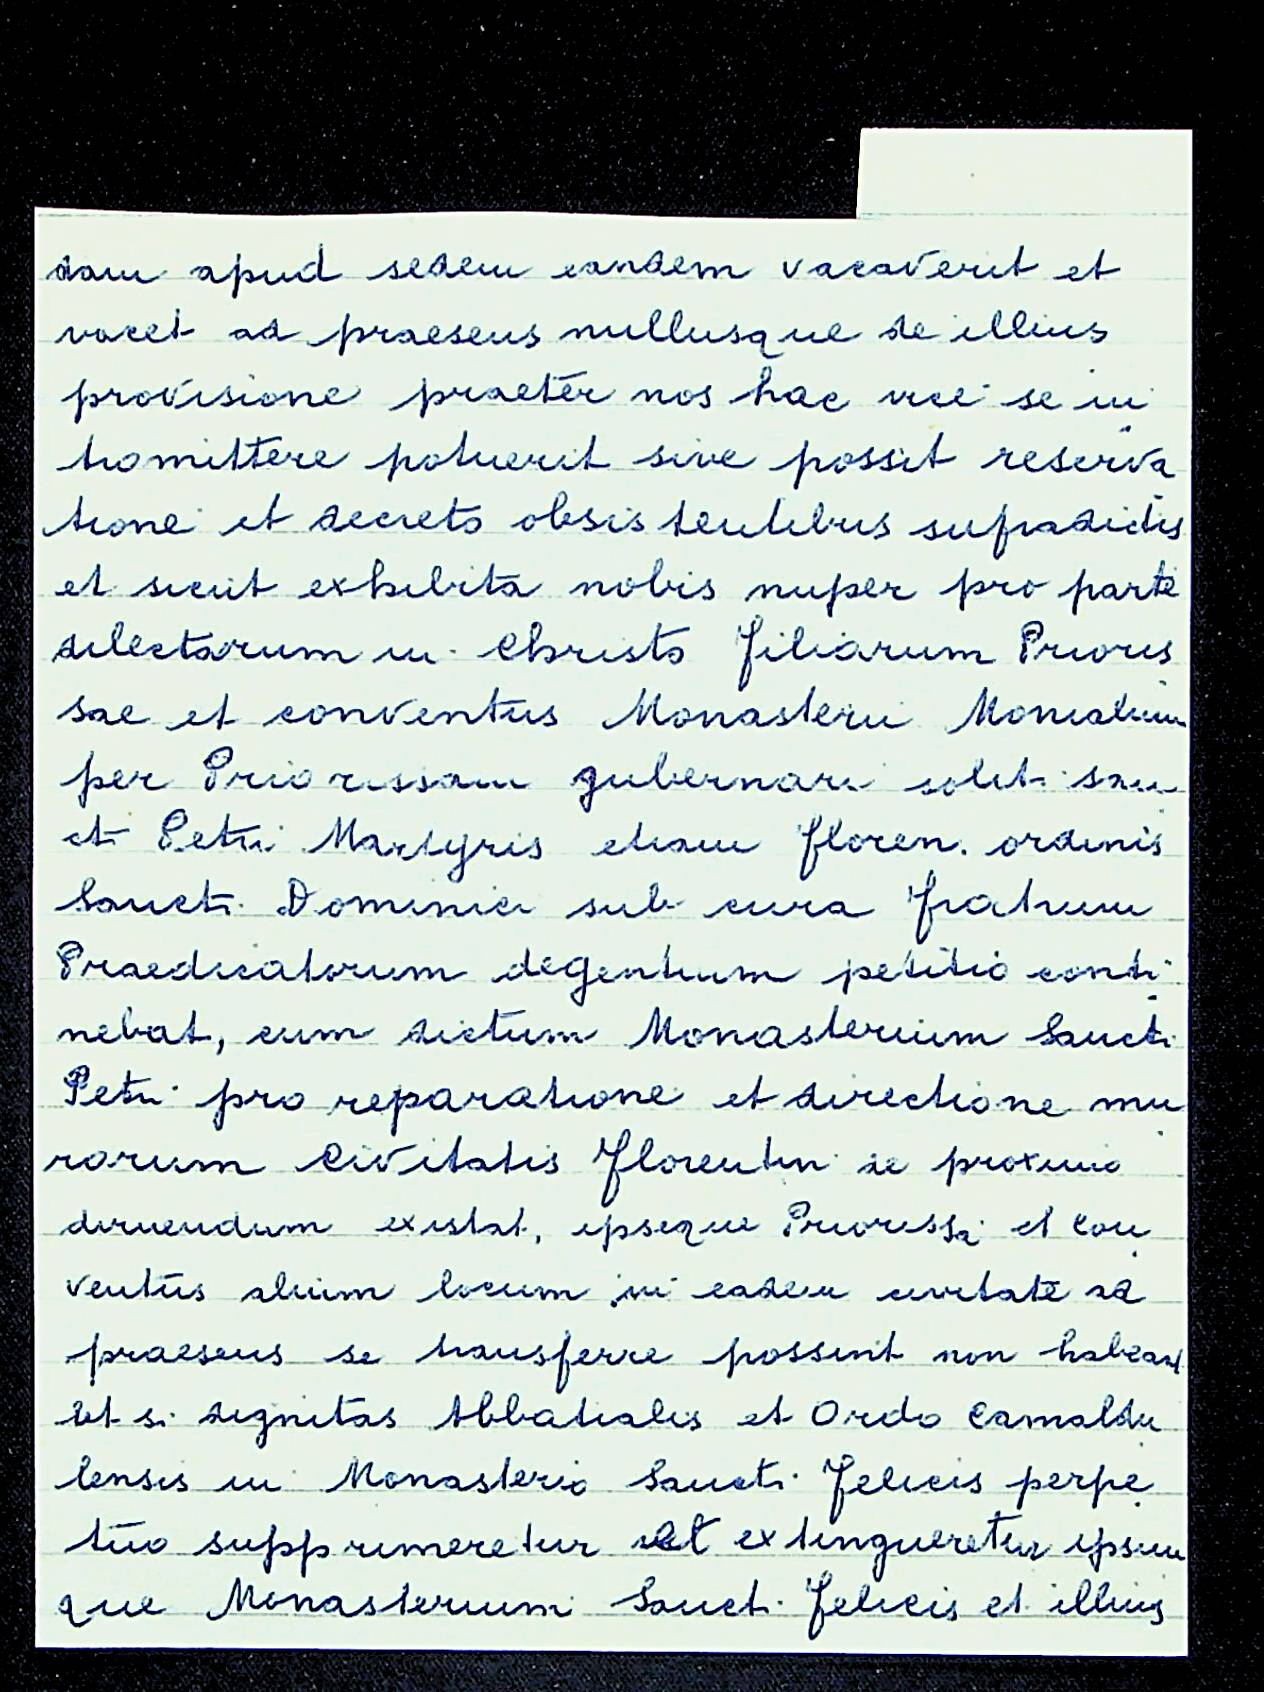 dam apud sedem eandem vacaverit et
vacet ad praesens nullusque de illius
provisione praeter nos hac vice se in
tromittere potuerit sive possit reserva
tione et decreto obsistentibus supradictis
et sicut exhibita nobis nuper pro parte
dilectarum in Christo filiarum Prioris
sae et conventus Monasterii Monialium
per Priorissam gubernari solit. san
cti Petri Martyris etiam floren. ordinis
Sancti Dominici sub cura fratrum
Praedicatorum degentium petitio conti
nebat, cum dictum Monasterium Sancti
Petri pro reparatione et directione mu
rorum Civitatis Florentin de proximo
diruendum existat, ipseque Priorissa et Con
ventus alium locum in eadem civitate ad
praesens se transferre possint non habeant
et si dignitas Abbatialis et Ordo Camaldu
lensis in Monasterio Sancti Felicis perpe
tuo supprimeretur et extingueretur ipsum
que Monasterium Sancti Felicis et illius